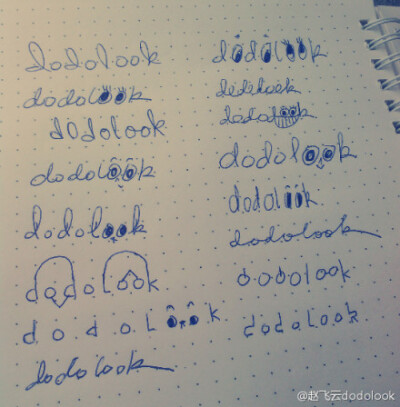 dodolook
dodolook
dodolook
dodolook
dodolook
dodolook
dodoLook
dodolook
dodolook
dodolook
dodolook
dodolook
dodolook
dodolook
dodolook
dodalook
@赵飞云dodolook